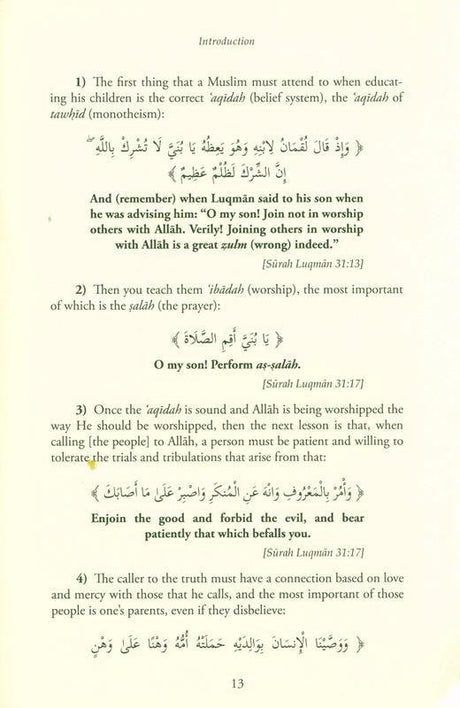 Introduction
1) The first thing that a Muslim must attend to when educat-
ing his children is the correct ‘aqīdah (belief system), the ‘aqīdah of
tawḥīd (monotheism):
﴿ وَإِذْ قَالَ لُقْمَانُ لِابْنِهِ وَهُوَ يَعِظُهُ يَا بُنَيَّ لَا تُشْرِكْ بِاللَّهِ ۖ
إِنَّ الشِّرْكَ لَظُلْمٌ عَظِيمٌ ﴾
And (remember) when Luqmān said to his son when
he was advising him: “O my son! Join not in worship
others with Allāh. Verily! Joining others in worship
with Allāh is a great ẓulm (wrong) indeed.”
[Sūrah Luqmān 31:13]
2) Then you teach them ‘ibādah (worship), the most important
of which is the ṣalāh (the prayer):
﴿ يَا بُنَيَّ أَقِمِ الصَّلَاةَ ﴾
O my son! Perform aṣ-ṣalāh.
[Sūrah Luqmān 31:17]
3) Once the ‘aqīdah is sound and Allāh is being worshipped the
way He should be worshipped, then the next lesson is that, when
calling [the people] to Allāh, a person must be patient and willing to
tolerate the trials and tribulations that arise from that:
﴿ وَأْمُرْ بِالْمَعْرُوفِ وَانْهَ عَنِ الْمُنْكَرِ وَاصْبِرْ عَلَىٰ مَا أَصَابَكَ ﴾
Enjoin the good and forbid the evil, and bear
patiently that which befalls you.
[Sūrah Luqmān 31:17]
4) The caller to the truth must have a connection based on love
and mercy with those that he calls, and the most important of those
people is one’s parents, even if they disbelieve:
﴿ وَوَصَّيْنَا الْإِنْسَانَ بِوَالِدَيْهِ حَمَلَتْهُ أُمُّهُ وَهْنًا عَلَىٰ وَهْنٍ
13